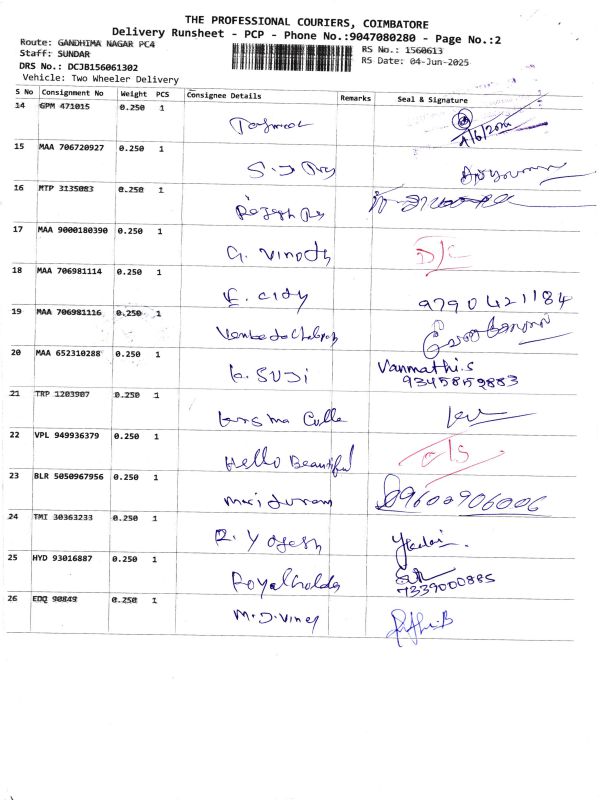 THE PROFESSIONAL COURIERS, COIMBATORE
Delivery Runsheet - PCP - Phone No.:9047080280 - Page No.:2
Route: GANDHIMA NAGAR PC4
RS No.: 1560613
Staff: SUNDAR
RS Date: 04-Jun-2025
DRS No.: DCJB156061302
Vehicle: Two Wheeler Delivery
S No Consignment No Weight PCS Consignee Details Remarks Seal & Signature
14 GPM 471015 0.250 1
15 MAA 706720927 0.250 1
16 MTP 3135083 0.250 1
17 MAA 9000180390 0.250 1 G. Vinoth D/C
18 MAA 706981114 0.250 1 E. City 9790421184
19 MAA 706981116 0.250 1
20 MAA 652310288 0.250 1 K. SUJI Vanmathi.S
9345859883
21 TRP 1203907 0.250 1
22 VPL 949936379 0.250 1 Hello Beautiful
23 BLR 5050967956 0.250 1 09600906006
24 TMI 30363233 0.250 1 R. Yogesh
25 HYD 93016887 0.250 1
7339000885
26 EDQ 90849 0.250 1